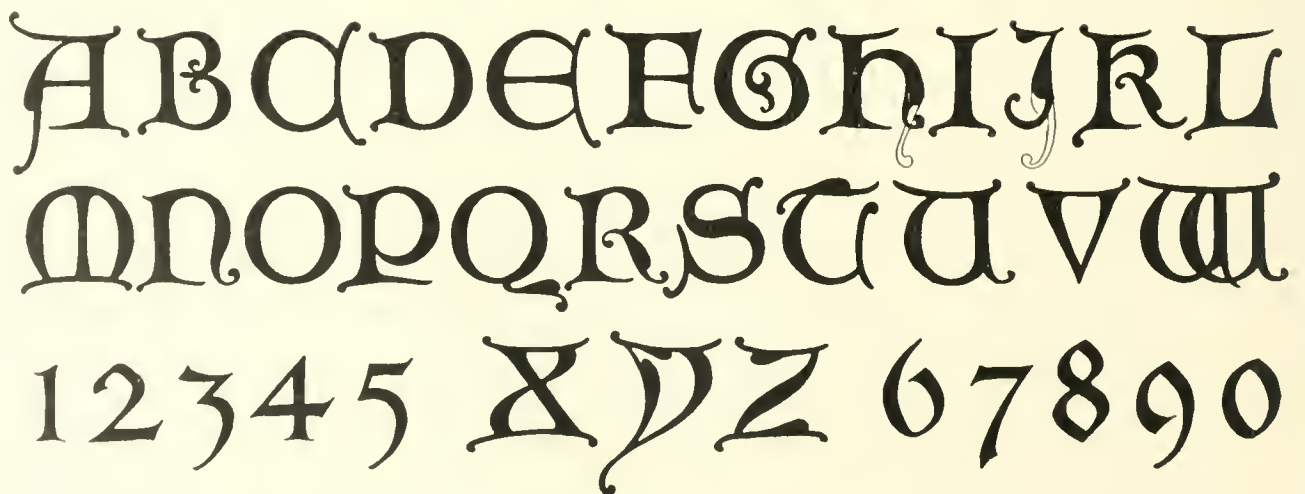 ABCDEFGhIJKL
MNOPQRSTUVW
12345 XYZ 67890